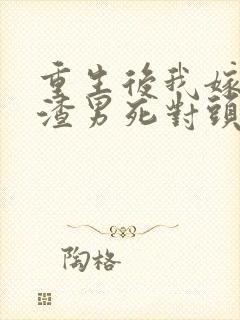 重生後我嫁
渣男死對頭
陶格